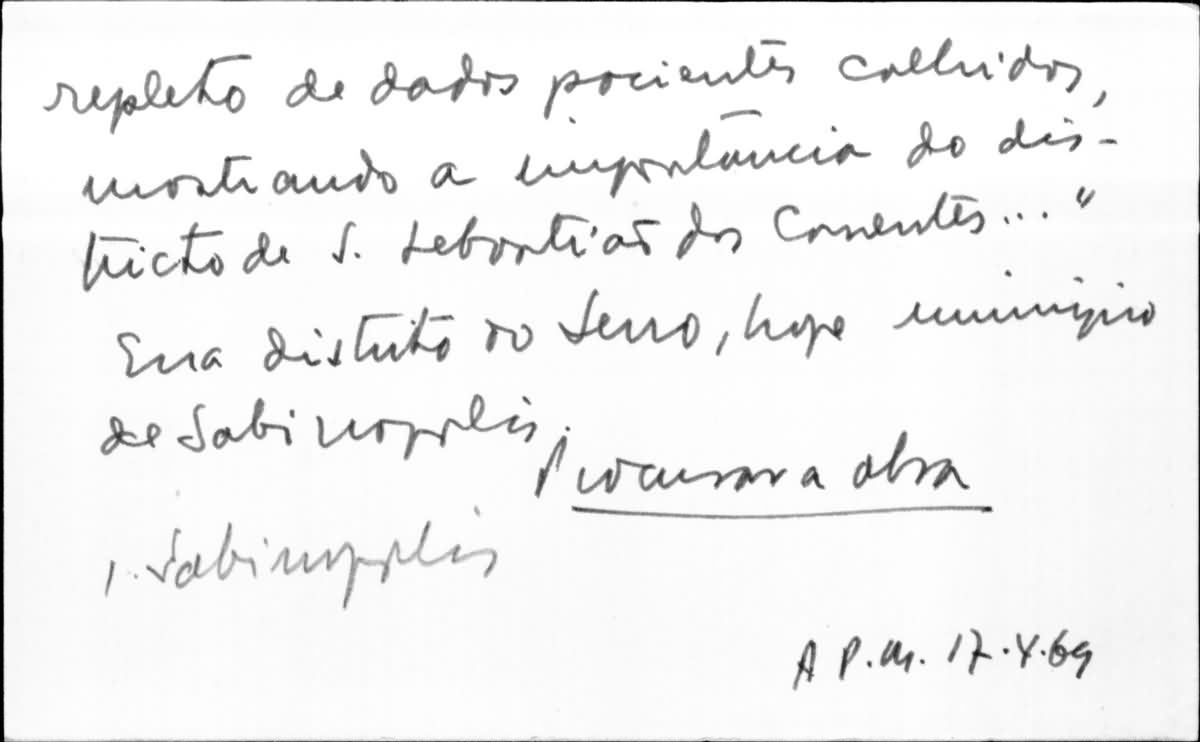 repleto de dados pacientes colhidos,
mostrando a importância do dis-
tricto de S. Sebastião dos Correntes..."
Era distrito do Serro, hoje município
de Sabinopolis.
Procurar a obra
1. Sabinopolis
A P.M. 17.X.69